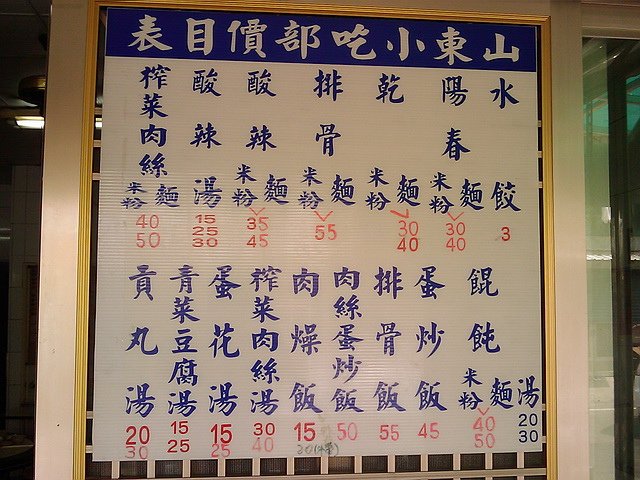 山東小吃部價目表
水餃 3
陽春 米粉 麵 30 40
乾 米粉 麵 30 40
排骨 米粉 麵 55
酸辣 米粉 麵 35 45
酸辣湯 15 25 30
榨菜肉絲 米粉 麵 40 50
餛飩 米粉 麵 40 50 湯 20 30
蛋炒飯 45
排骨飯 55
肉絲蛋炒飯 50
肉燥飯 15
榨菜肉絲湯 30 40
蛋花湯 15 25
青菜豆腐湯 15 25
貢丸湯 20 30